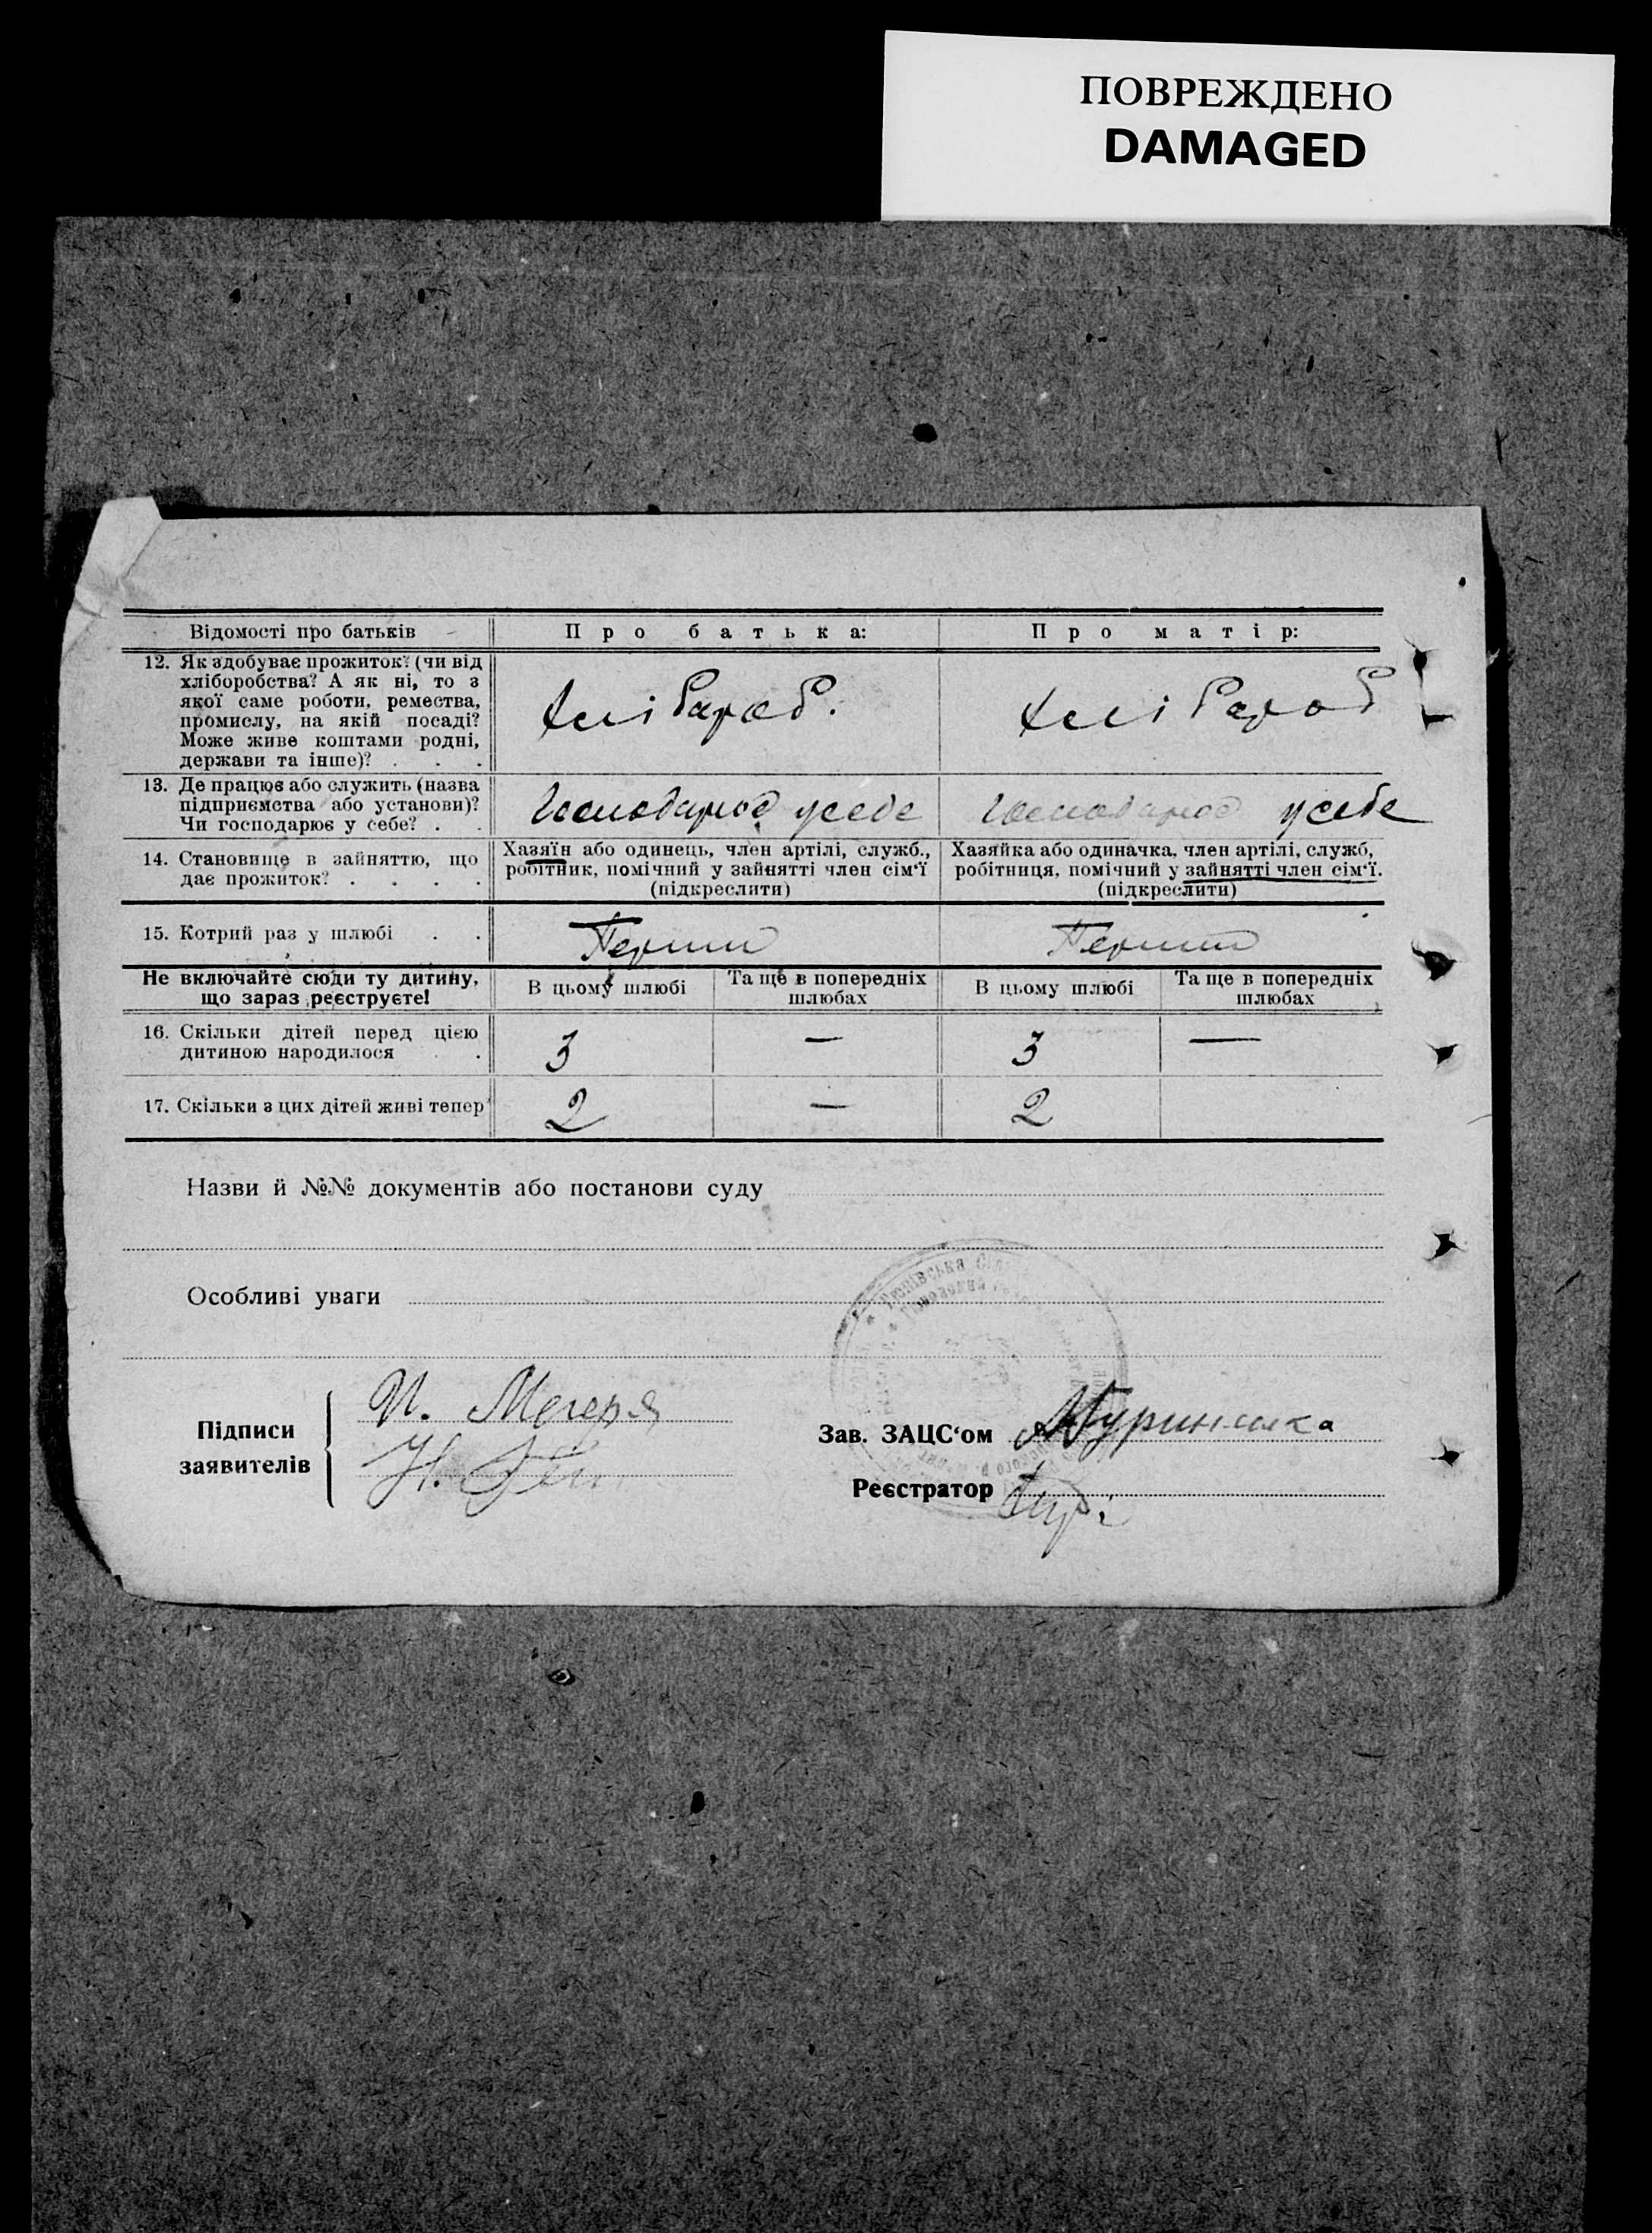 ПОВРЕЖДЕНО
DAMAGED
Відомості про батьків
Про батька:
Про матір:
12. Як здобуває прожиток? (чи від
хліборобства? А як ні, то з
якої саме роботи, ремества,
промислу, на якій посаді?
Може живе коштами родні,
держави та інше)? . . .
хлібароб.
хлібароб
13. Де працює або служить (назва
підприємства або установи)?
Чи господарює у себе? . .
Господарює у себе
Господарює у себе
14. Становище в зайняттю, що
дає прожиток? . . . .
Хазяїн або одинець, член артілі, служб.,
робітник, помічний у зайнятті член сім'ї
(підкреслити)
Хазяйка або одиначка, член артілі, служб,
робітниця, помічний у зайнятті член сім'ї.
(підкреслити)
15. Котрий раз у шлюбі . .
Перший
Перший
Не включайте сюди ту дитину,
що зараз реєструєте!
В цьому шлюбі
Та ще в попередніх
шлюбах
В цьому шлюбі
Та ще в попередніх
шлюбах
16. Скільки дітей перед цією
дитиною народилося .
3
—
3
—
17. Скільки з цих дітей живі тепер
2
—
2
Назви й №№ документів або постанови суду
Особливі уваги
Підписи
заявителів
И. Мегеря
Н.
Зав. ЗАЦС'ом
Реєстратор